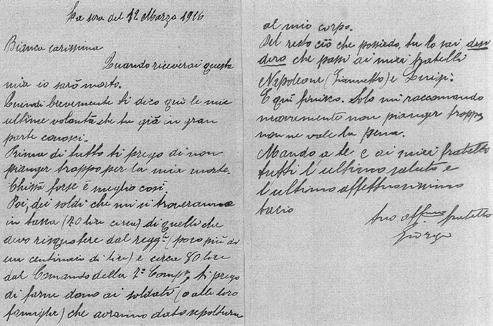 La sera del 12 Marzo 1916
Bianca carissima
Quando riceverai questa
mia io sarò morto.
Quindi brevemente ti dico qui le mie
ultime volontà che tu già in gran
parte conosci.
Prima di tutto ti prego di non
pianger troppo per la mia morte.
Chissà forse è meglio così.
Poi, dei soldi che mi si troveranno
in tasca (70 lire circa) di quelli che
devo riscuotere dal regg.to (poco più di
un centinaio di lire) e circa 80 lire
dal Comando della 2a Comp. ti prego
di farne dono ai soldati (o alle loro
famiglie) che avranno dato sepoltura
al mio corpo.
Del resto ciò che possiedo, tu lo sai desi
dero che passi ai miei fratelli
Napoleone (Giannetto) e Luigi.
E qui finisco. Solo mi raccomando
nuovamente non pianger troppo
non ne vale la pena.
Mando a te e ai miei fratelli
tutti l'ultimo saluto e
l'ultimo affettuosissimo
bacio
tuo aff.mo fratello